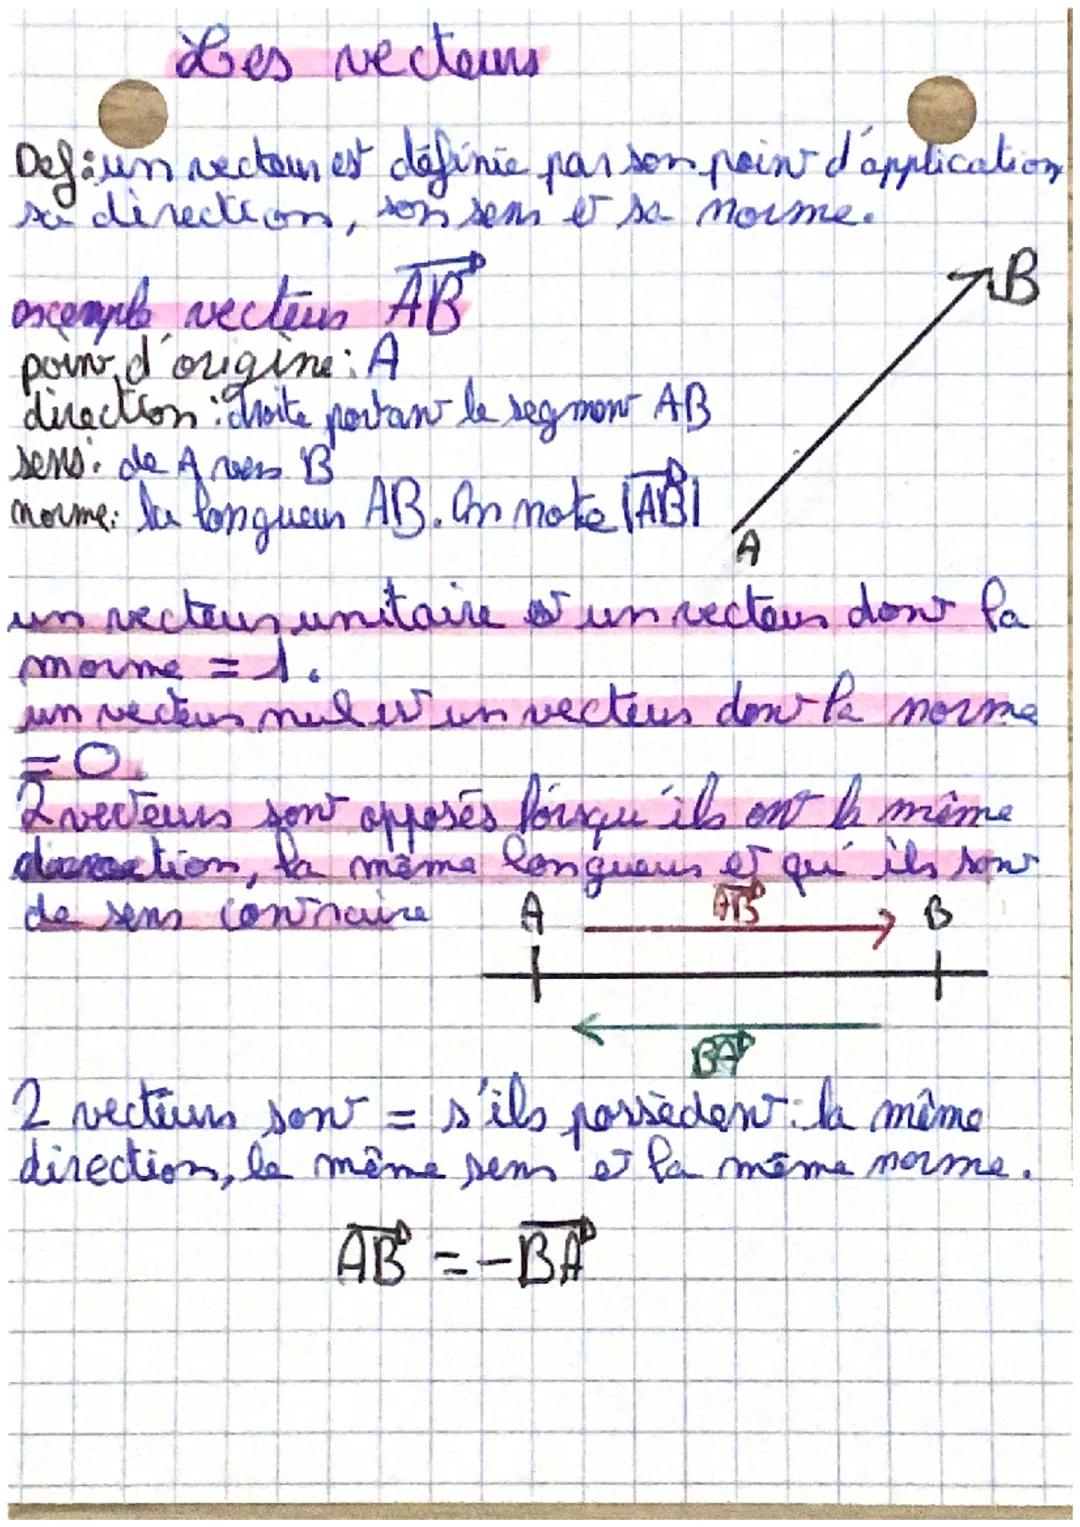 Les vecteurs
Def: un vecteur est définie par son point d'application
sa direction, son sens et sa norme.
exemple vecteur AB
B
point d'origine: A
direction: droite portant le segment AB
sens: de A vers B
norme: la longueur AB. On note |AB|
A
un vecteur unitaire est un vecteur dont la
norme = 1.
un vecteur nul est un vecteur dont la norme
= 0.
2 vecteurs sont opposés lorsqu'ils ont la même
direction, la même longueur et qu'ils sont
de sens contraire
A AB B
BA
2 vecteurs sont = s'ils possèdent: la même
direction, le même sens et la même norme.
AB = -BA